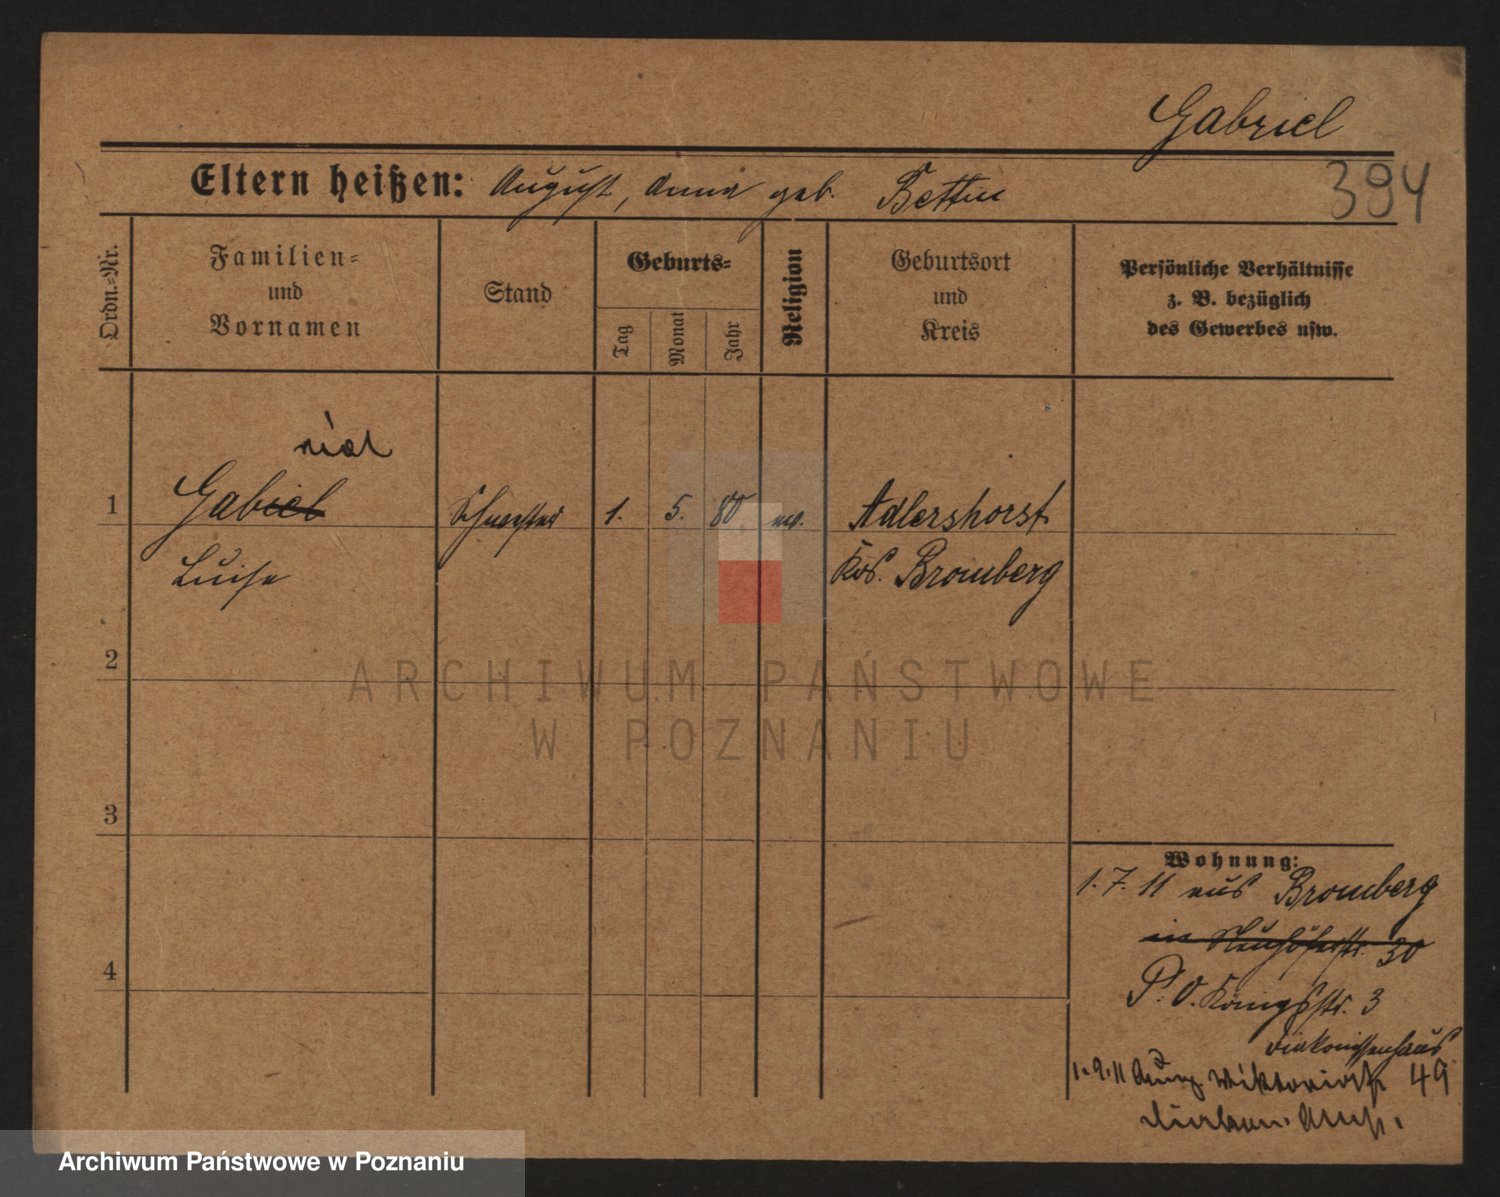 Gabriel
394
Eltern heißen: August, Anna geb. Bettin
Ordn.-Nr.
Familien- und Vornamen
Stand
Geburts-
Tag
Monat
Jahr
Religion
Geburtsort und Kreis
Persönliche Verhältnisse z. B. bezüglich des Gewerbes usw.
riel
1 Gabriel Schwester 1. 5. 80 ev. Adlershorst
Luise Krs. Bromberg
2
3
4
ARCHIWUM PAŃSTWOWE
W POZNANIU
Wohnung:
1.7.11 aus Bromberg
in Neuhöferstr. 30
P. O. Königsstr. 3
Diakonissenhaus
1.9.11 Viktoriastr 49
Archiwum Państwowe w Poznaniu